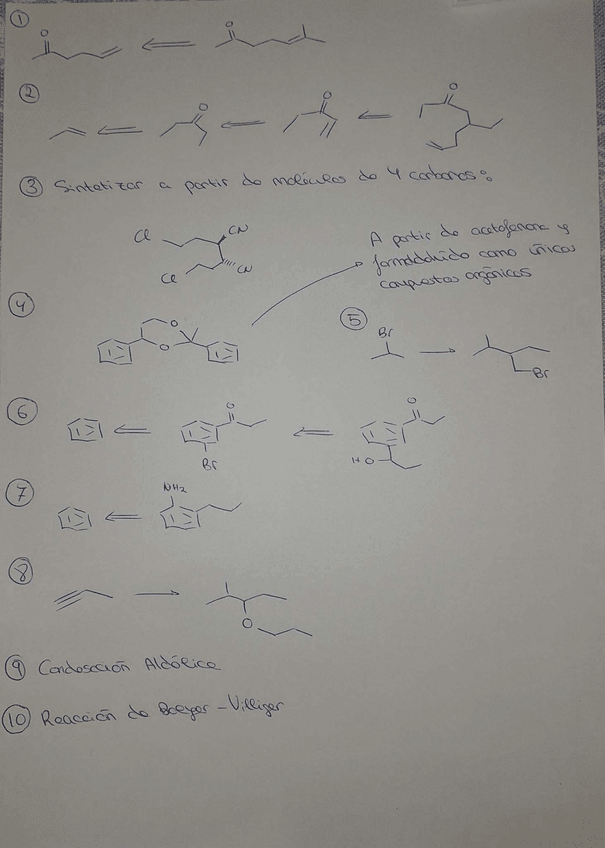 ①
O
O
②
O
O
O
③ Sintetizar a partir de moléculas de 4 carbonos:
Cl
CN
Cl
CN
A partir de acetofenona y
formaldehído como únicos
compuestos orgánicos
④
O
O
⑤
Br
Br
⑥
O
Br
O
HO
⑦
NH2
⑧
O
⑨ Condesación Aldólica
⑩ Reacción de Baeyer-Villiger